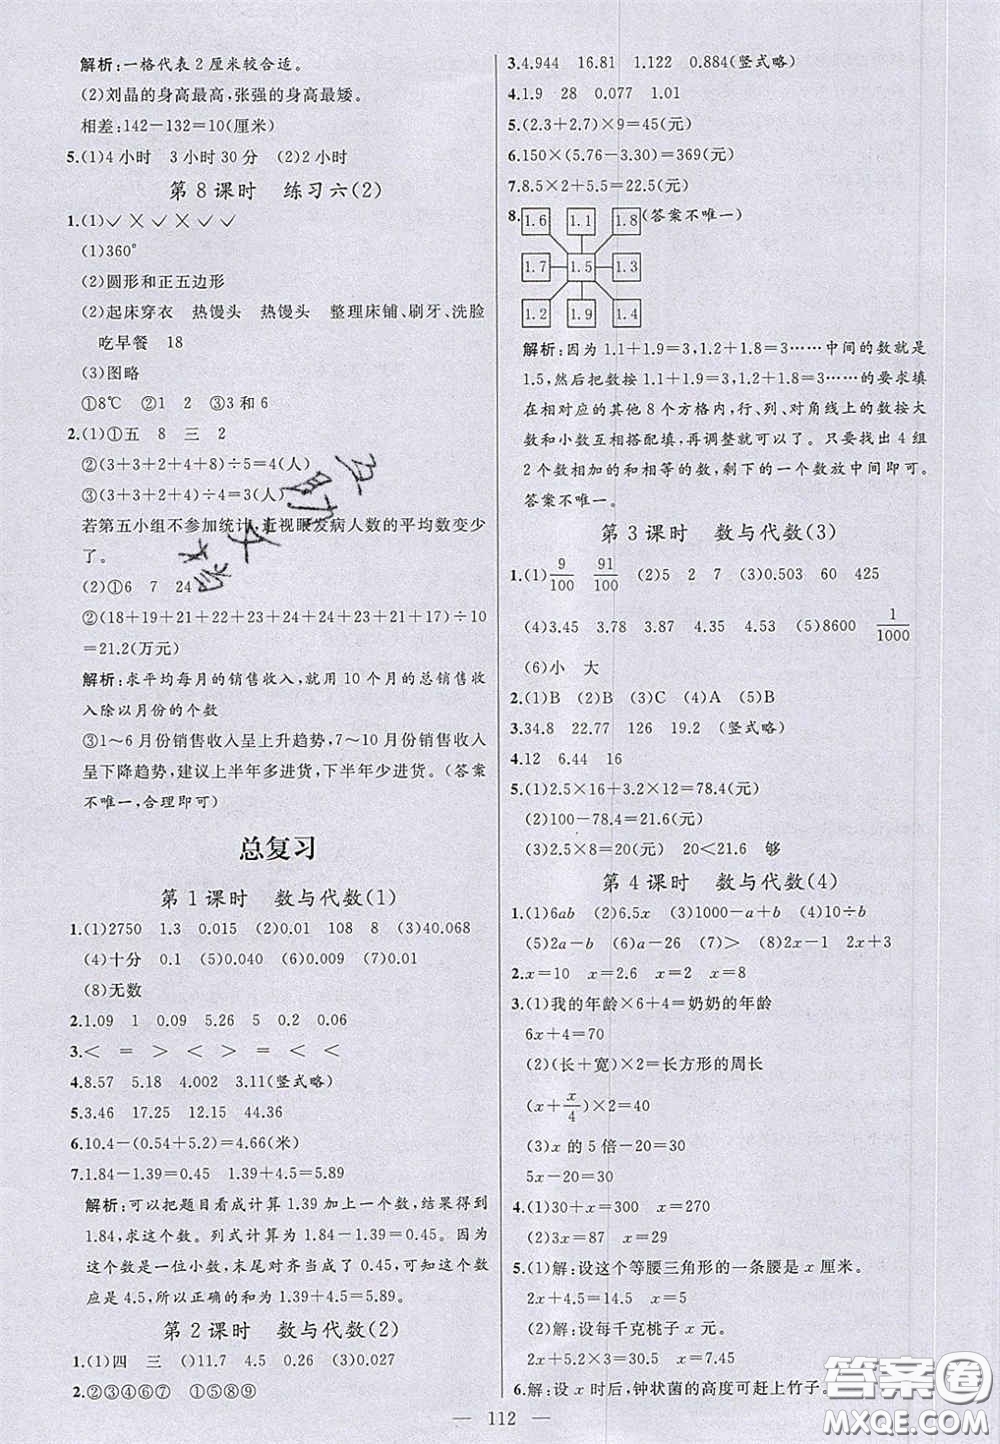 解析:一格代表2厘米较合适。
(2)刘晶的身高最高,张强的身高最矮。
相差:142－132＝10(厘米)
5.(1)4小时 3小时30分 (2)2小时
第8课时 练习六(2)
1.(1)✓ ✕ ✓ ✕ ✓ ✓
(1)360°
(2)圆形和正五边形
(2)起床穿衣 热馒头 热馒头 整理床铺、刷牙、洗脸
吃早餐 18
(3)图略
①8℃ ②1 2 ③3和6
2.(1)①五 8 三 2
②(3＋3＋2＋4＋8)÷5＝4(人)
③(3＋3＋2＋4)÷4＝3(人)
若第五小组不参加统计,近视眼发病人数的平均数变少
了。
(2)①6 7 24
②(18＋19＋21＋22＋23＋24＋24＋23＋21＋17)÷10
＝21.2(万元)
解析:求平均每月的销售收入,就用10个月的总销售收
入除以月份的个数
③1～6月份销售收入呈上升趋势,7～10月份销售收入
呈下降趋势,建议上半年多进货,下半年少进货。(答案
不唯一,合理即可)
总复习
第1课时 数与代数(1)
1.(1)2750 1.3 0.015 (2)0.01 108 8 (3)40.068
(4)十分 0.1 (5)0.040 (6)0.009 (7)0.01
(8)无数
2.1.09 1 0.09 5.26 5 0.2 0.06
3.＜ ＝ ＞ ＜ ＞ ＜ ＞
4.8.57 5.18 4.002 3.11(竖式略)
5.3.46 17.25 12.15 44.36
6.10.4－(0.54＋5.2)＝4.66(米)
7.1.84－1.39＝0.45 1.39＋4.5＝5.89
解析:可以把题目看成计算1.39加上一个数,结果得到
1.84,求这个数。列式计算为1.84－1.39＝0.45。因为
这个数是一位小数,末尾对齐当成了0.45,可知这个数
应是4.5,所以正确的和为1.39＋4.5＝5.89。
第2课时 数与代数(2)
1.(1)四 三 ()11.7 4.5 0.26 (3)0.027
2.②③④⑥⑦ ①⑤⑧⑨
3.4.944 16.81 1.122 0.884(竖式略)
4.1.9 28 0.077 1.01
5.(2.3＋2.7)×9＝45(元)
6.150×(5.76－3.30)＝369(元)
7.8.5×2＋5.5＝22.5(元)
8. 1.6 1.1 1.8 (答案不唯一)
1.7 1.5 1.3
1.2 1.9 1.4
解析:因为1.1＋1.9＝3,1.2＋1.8＝3……中间的数就是
1.5,然后把数按1.1＋1.9＝3,1.2＋1.8＝3……的要求填
在相对应的其他8个方格内,行、列、对角线上的数按大
数和小数互相搭配填,再调整就可以了。只要找出4组
2个数相加的和相等的数,剩下的一个数放中间即可。
答案不唯一。
第3课时 数与代数(3)
1.(1)9/100 91/100 (2)5 2 7 (3)0.503 60 425
(4)3.45 3.78 3.87 4.35 4.53 (5)8600 1/1000
(6)小 大
2.(1)B (2)B (3)C (4)A (5)B
3.34.8 22.77 126 19.2 (竖式略)
4.12 6.44 16
5.(1)2.5×16＋3.2×12＝78.4(元)
(2)100－78.4＝21.6(元)
(3)2.5×8＝20(元) 20＜21.6 够
第4课时 数与代数(4)
1.(1)6ab (2)6.5x (3)1000－a＋b (4)10÷b
(5)2a－b (6)6a－26 (7)＞ (8)2x－1 2x＋3
2.x＝10 x＝2.6 x＝2 x＝8
3.(1)我的年龄×6＋4＝奶奶的年龄
6x＋4＝70
(2)(长＋宽)×2＝长方形的周长
(x＋x/4)×2＝40
(3)x的5倍－20＝30
5x－20＝30
4.(1)30＋x＝300 x＝270
(2)3x＝87 x＝29
5.(1)解:设这个等腰三角形的一条腰是x厘米。
2x＋4.5＝14.5 x＝5
(2)解:设每千克桃子x元。
2x＋0.6＝15.5 x＝7.45
6.解:设x时后,钟状菌的高度可赶上竹子。
112
答案圈
MXQE.COM